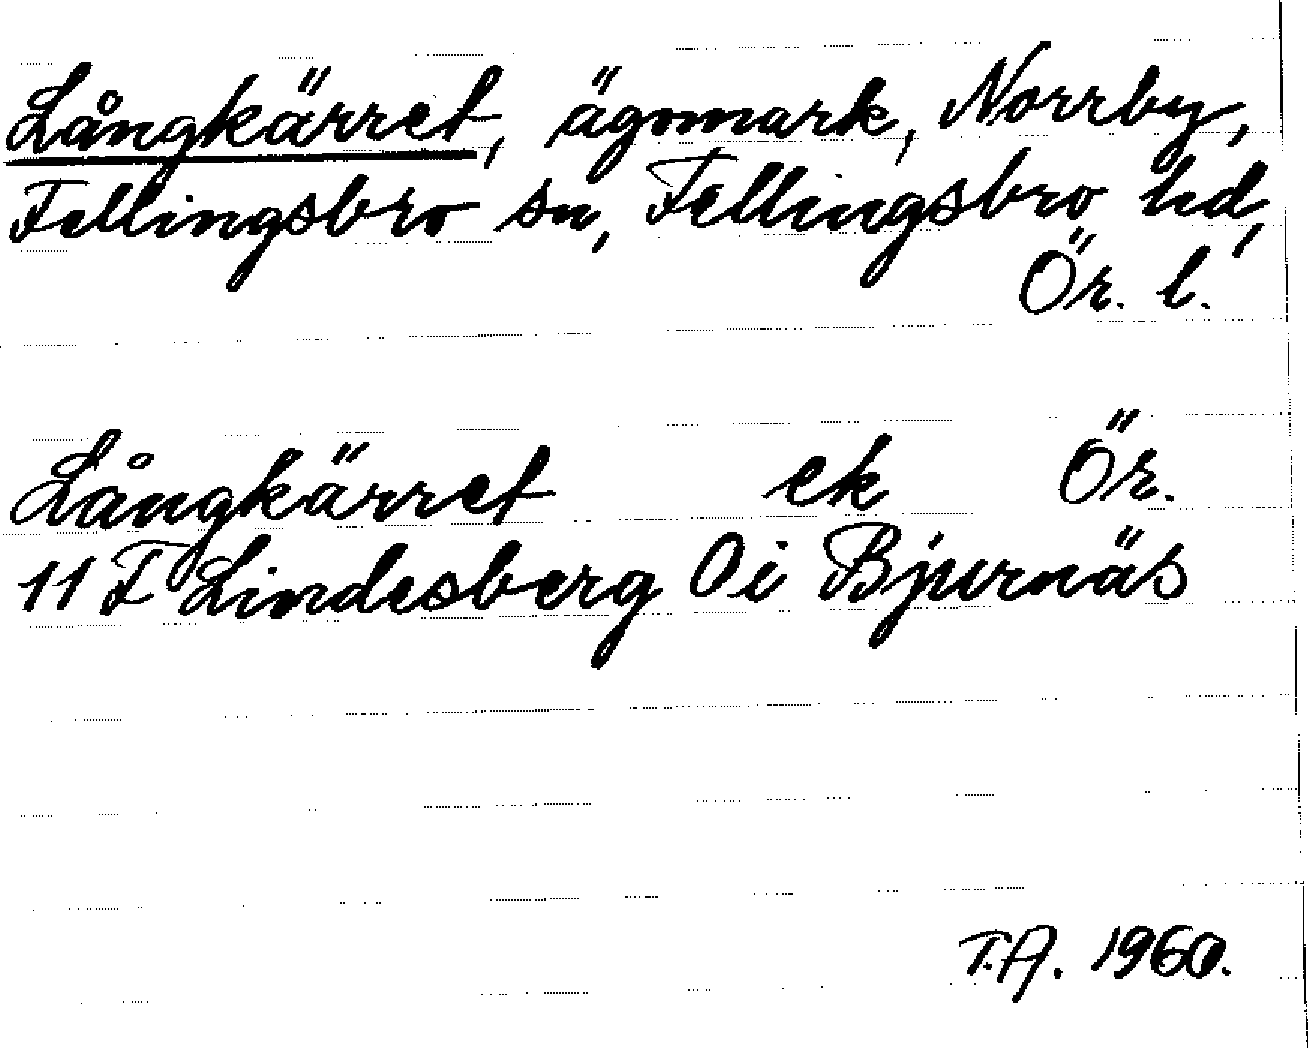 Långkärret, ägomark, Norrby,
Fellingsbro sn, Fellingsbro hd,
Ör. l.
Långkärret ek Ör.
11 F Lindesberg 0i Bjurnäs
T.A. 1960.